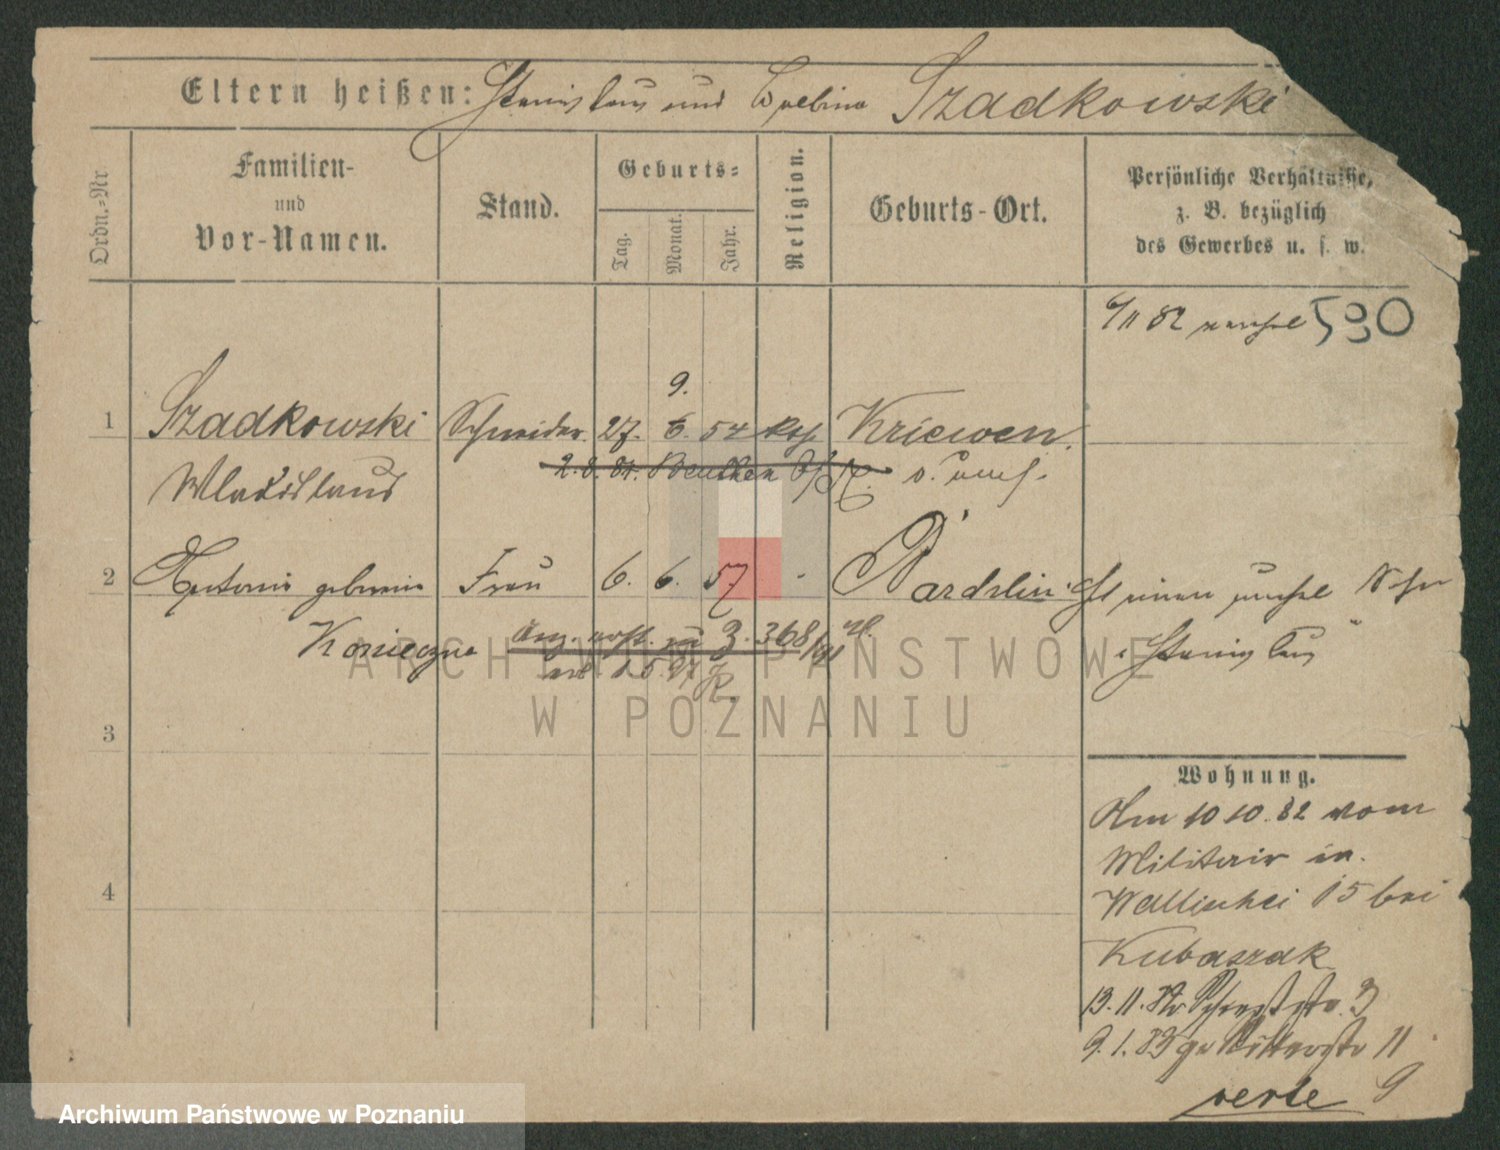 Eltern heißen: Stanislaus und Balbina Szadkowski
Ordn.-Nr
Familien-
und
Vor-Namen.
Stand.
Geburts-
Tag.
Monat.
Jahr.
Religion.
Geburts-Ort.
Persönliche Verhältnisse,
z. B. bezüglich
des Gewerbes u. s. w.
6/11 82 590
9.
1 Szadkowski Schneider 27. 6. 54 kath Kriewen
Wladislaus 2. 8. 84. Beuthen O/S
2 Antonie geborene Frau 6. 6. 57 - Pardelin
Konieczna 368/91
Stanislaus
3
4
Wohnung.
Am 10 10. 82 vom
Militair in
Wallischei 15 bei
Kubaszak
13. 11. 82 3
9. 1. 83 Ritterstr 11
verte 9
ARCHIWUM PAŃSTWOWE
W POZNANIU
Archiwum Państwowe w Poznaniu